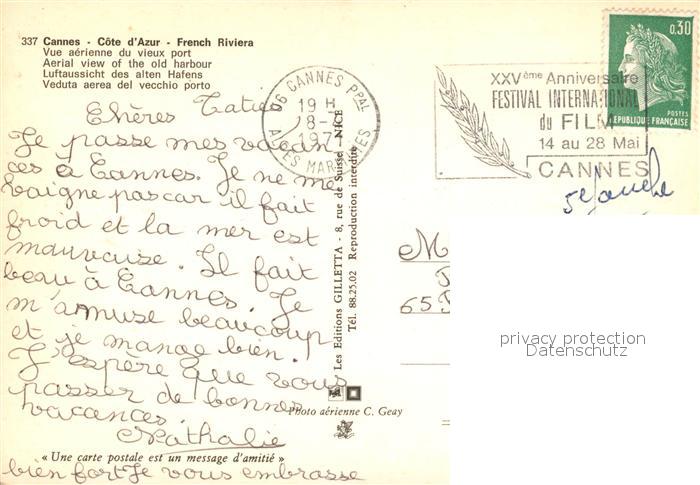 337 Cannes - Côte d'Azur - French Riviera
Vue aérienne du vieux port
Aerial view of the old harbour
Luftaussicht des alten Hafens
Veduta aerea del vecchio porto
Chères Taties
Je passe mes vacan
ces à Cannes. Je ne me
baigne pas car il fait
froid et la mer est
mauvaise. Il fait
beau à Cannes. Je
m'amuse beaucoup
et je mange bien.
J'espère que vous
passer de bonnes
vacances.
Nathalie
« Une carte postale est un message d'amitié »
bien fort Je vous embrasse
06 CANNES PPAL
19 H
8-
197
ALPES MARITIMES
Les Editions GILLETTA - 8, rue de Suisse - NICE
Tél. 88.25.02 Reproduction interdite
Photo aérienne C. Geay
XXVème Anniversaire
FESTIVAL INTERNATIONAL
du FILM
14 au 28 Mai
CANNES
0,30
POSTES
REPUBLIQUE FRANÇAISE
5e gauche
M
65
privacy protection
Datenschutz